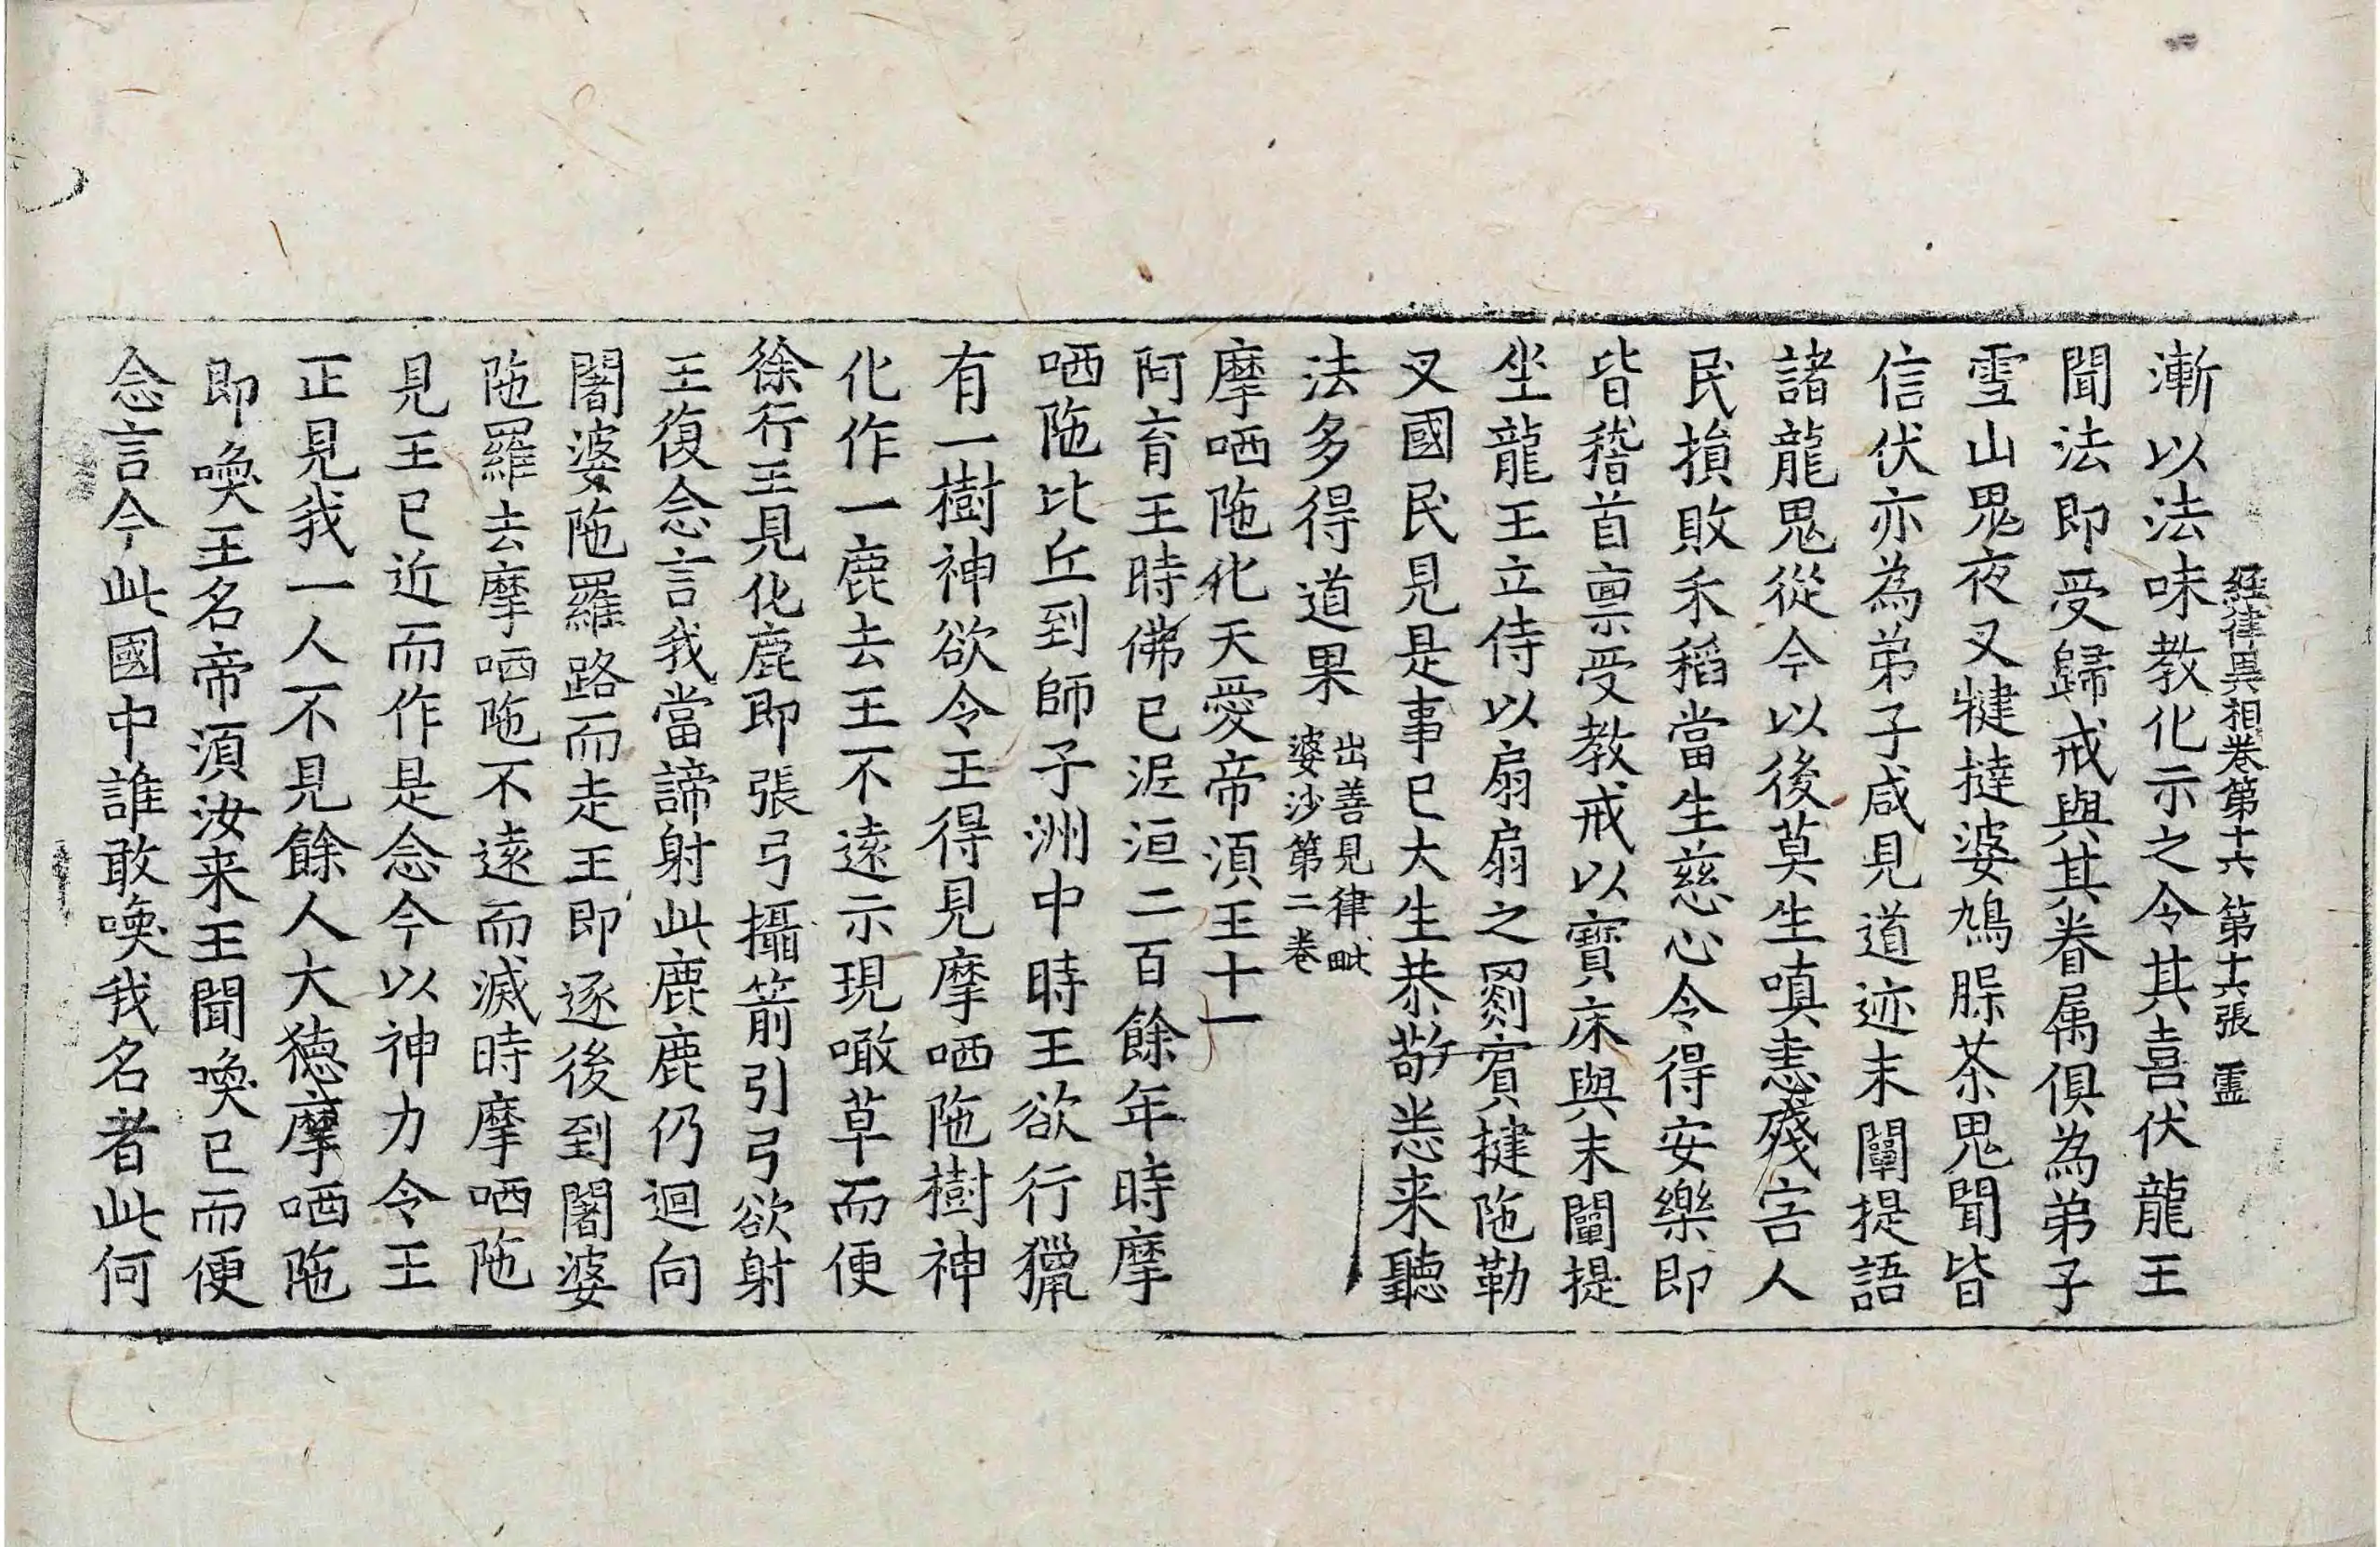 經律異相卷第十六　第十六張　靈
漸以法味教化示之令其喜伏龍王
聞法即受歸戒與其眷属俱為弟子
雪山鬼夜叉犍撻婆鳩脲茶鬼聞皆
信伏亦為弟子咸見道迹末闡提語
諸龍鬼從今以後莫生嗔恚殘害人
民損敗禾稻當生慈心令得安樂即
皆稽首禀受教戒以寶床與末闡提
坐龍王立侍以扇扇之罽賓揵陁勒
叉國民見是事已大生恭敬悉来聽
法多得道果出善見律毗
婆沙第二卷
摩哂陁化天愛帝湏王十一
阿育王時佛已泥洹二百餘年時摩
哂陁比丘到師子洲中時王欲行獵
有一樹神欲令王得見摩哂陁樹神
化作一鹿去王不遠示現噉草而便
徐行王見化鹿即張弓攝箭引弓欲射
王復念言我當諦射此鹿鹿仍迴向
闍婆陁羅路而走王即逐後到闍婆
陁羅去摩哂陁不遠而滅時摩哂陁
見王已近而作是念今以神力令王
正見我一人不見餘人大德摩哂陁
即喚王名帝湏汝来王聞喚已而便
念言今此國中誰敢喚我名者此何